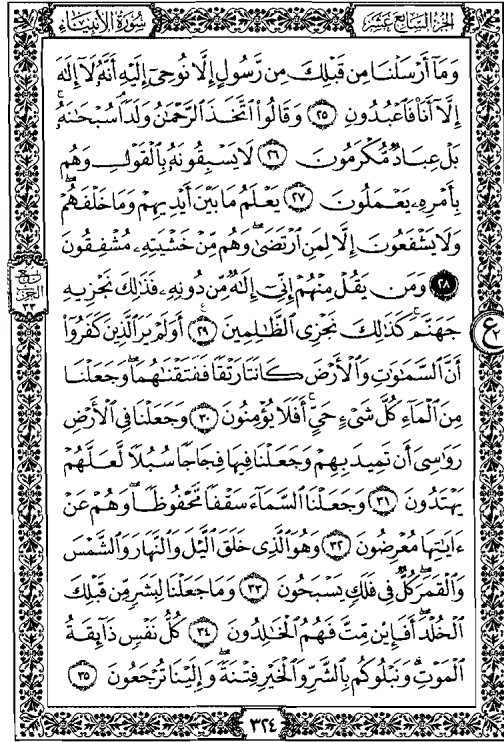 الجزء السابع عشر
سورة الأنبياء
وَمَآ أَرْسَلْنَا مِن قَبْلِكَ مِن رَّسُولٍ إِلَّا نُوحِىٓ إِلَيْهِ أَنَّهُۥ لَآ إِلَٰهَ
إِلَّآ أَنَا۠ فَٱعْبُدُونِ ٢٥ وَقَالُوا۟ ٱتَّخَذَ ٱلرَّحْمَٰنُ وَلَدًا ۗ سُبْحَٰنَهُۥ ۚ
بَلْ عِبَادٌ مُّكْرَمُونَ ٢٦ لَا يَسْبِقُونَهُۥ بِٱلْقَوْلِ وَهُم
بِأَمْرِهِۦ يَعْمَلُونَ ٢٧ يَعْلَمُ مَا بَيْنَ أَيْدِيهِمْ وَمَا خَلْفَهُمْ
وَلَا يَشْفَعُونَ إِلَّا لِمَنِ ٱرْتَضَىٰ وَهُم مِّنْ خَشْيَتِهِۦ مُشْفِقُونَ
٢٨ وَمَن يَقُلْ مِنْهُمْ إِنِّىٓ إِلَٰهٌ مِّن دُونِهِۦ فَذَٰلِكَ نَجْزِيهِ
جَهَنَّمَ ۚ كَذَٰلِكَ نَجْزِى ٱلظَّٰلِمِينَ ٢٩ أَوَلَمْ يَرَ ٱلَّذِينَ كَفَرُوٓا۟
أَنَّ ٱلسَّمَٰوَٰتِ وَٱلْأَرْضَ كَانَتَا رَتْقًا فَفَتَقْنَٰهُمَا ۖ وَجَعَلْنَا
مِنَ ٱلْمَآءِ كُلَّ شَىْءٍ حَىٍّ ۖ أَفَلَا يُؤْمِنُونَ ٣٠ وَجَعَلْنَا فِى ٱلْأَرْضِ
رَوَٰسِىَ أَن تَمِيدَ بِهِمْ وَجَعَلْنَا فِيهَا فِجَاجًا سُبُلًا لَّعَلَّهُمْ
يَهْتَدُونَ ٣١ وَجَعَلْنَا ٱلسَّمَآءَ سَقْفًا مَّحْفُوظًا ۖ وَهُمْ عَنْ
ءَايَٰتِهَا مُعْرِضُونَ ٣٢ وَهُوَ ٱلَّذِى خَلَقَ ٱلَّيْلَ وَٱلنَّهَارَ وَٱلشَّمْسَ
وَٱلْقَمَرَ ۖ كُلٌّ فِى فَلَكٍ يَسْبَحُونَ ٣٣ وَمَا جَعَلْنَا لِبَشَرٍ مِّن قَبْلِكَ
ٱلْخُلْدَ ۖ أَفَإِي۟ن مِّتَّ فَهُمُ ٱلْخَٰلِدُونَ ٣٤ كُلُّ نَفْسٍ ذَآئِقَةُ
ٱلْمَوْتِ ۗ وَنَبْلُوكُم بِٱلشَّرِّ وَٱلْخَيْرِ فِتْنَةً ۖ وَإِلَيْنَا تُرْجَعُونَ ٣٥
ربع
الحزب
٣٣
ع
٣٢٤